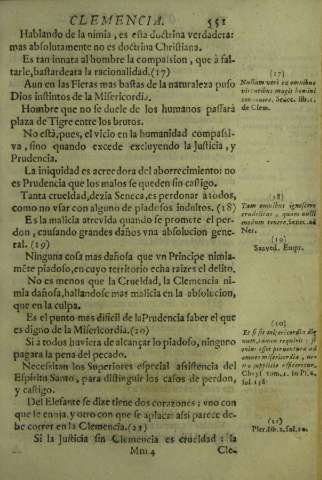 CLEMENCIA. 551
Hablando de la nimia, es esta doctrina verdadera:
mas absolutamente no es doctrina Christiana.
Es tan innata al hombre la compasion, que à fal-
tarle, bastardeara la racionalidad. (17)
Aun en las Fieras mas bastas de la naturaleza puso
Dios instintos de la Misericordia.
Hombre que no se duele de los humanos passarà
plaza de Tigre entre los brutos.
No està, pues, el vicio en la humanidad compasi-
va, sino quando excede excluyendo la Justicia, y
Prudencia.
La iniquidad es acreedora del aborrecimiento: no
es Prudencia que los malos se queden sin castigo.
Tanta crueldad, dezia Seneca, es perdonar à todos,
como no vsar con alguno de piadosos indultos. (18)
Es la malicia atrevida quando se promete el per-
don, causando grandes daños vna absolucion gene-
ral. (19)
Ninguna cosa mas dañosa que vn Principe nimia-
mẽte piadoso, en cuyo territorio echa raizes el delito.
No es menos que la Crueldad, la Clemencia ni-
mia dañosa, hallandose mas malicia en la absolucion,
que en la culpa.
Es el punto mas dificil de la Prudencia saber el que
es digno de la Misericordia. (20)
Si à todos huviera de alcançar lo piadoso, ninguno
pagara la pena del pecado.
Necessitan los Superiores especial assistencia del
Espiritu Santo, para distinguir los casos de perdon,
y castigo.
Del Elefante se dize tiene dos corazones: vno con
que se enoja, y otro con que se aplaca: assi parece de-
be correr en la Clemencia. (21)
Si la Justicia sin Clemencia es crueldad: la
Mm 4 Cle-
(17)
Nullam verò ex omnibus
virtutibus magis homini
convenit. Senec. lib. 1.
de Clem.
(18)
Tam omnibus ignoscere
crudelitas, quam nulli
Ner.
(19)
Saaved. Empr.
(20)
amor misericordia,
(21)
Pier. lib. 2. fol. 20.